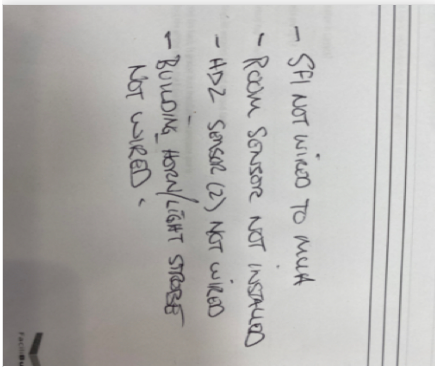 - SF1 NOT WIRED TO MUA
- ROOM SENSOR NOT INSTALLED
- AD2 SENSOR (2) NOT WIRED
- BUILDING HORN/LIGHT STROBE
NOT WIRED.